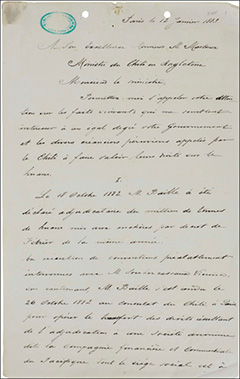 Paris le 16 Janvier 1883
A Son Excellence Monsieur M
Ministre du Chili en Angleterre
Monsieur le ministre,
Permettez moi d'appeler votre atten
tion sur les faits suivants qui me semblent
intéresser à un égal degré votre Gouvernement
et les divers créanciers péruviens appelés par
le Chili à faire valoir leurs droits sur le
huano.
I.
Le 18 Octobre 1882 M. Baille à été
déclaré adjudicataire du million de tonnes
de huano mis aux enchères par décret de
Février de la même année.
intervenues avec
M. Baille s'est rendu le
26 Octobre 1882 au consulat du Chili à Paris
pour opérer le transfert des droits résultant
de l'adjudication à une Société anonyme
dite la compagnie financière et Commerciale
du Pacifique dont le siège social est à